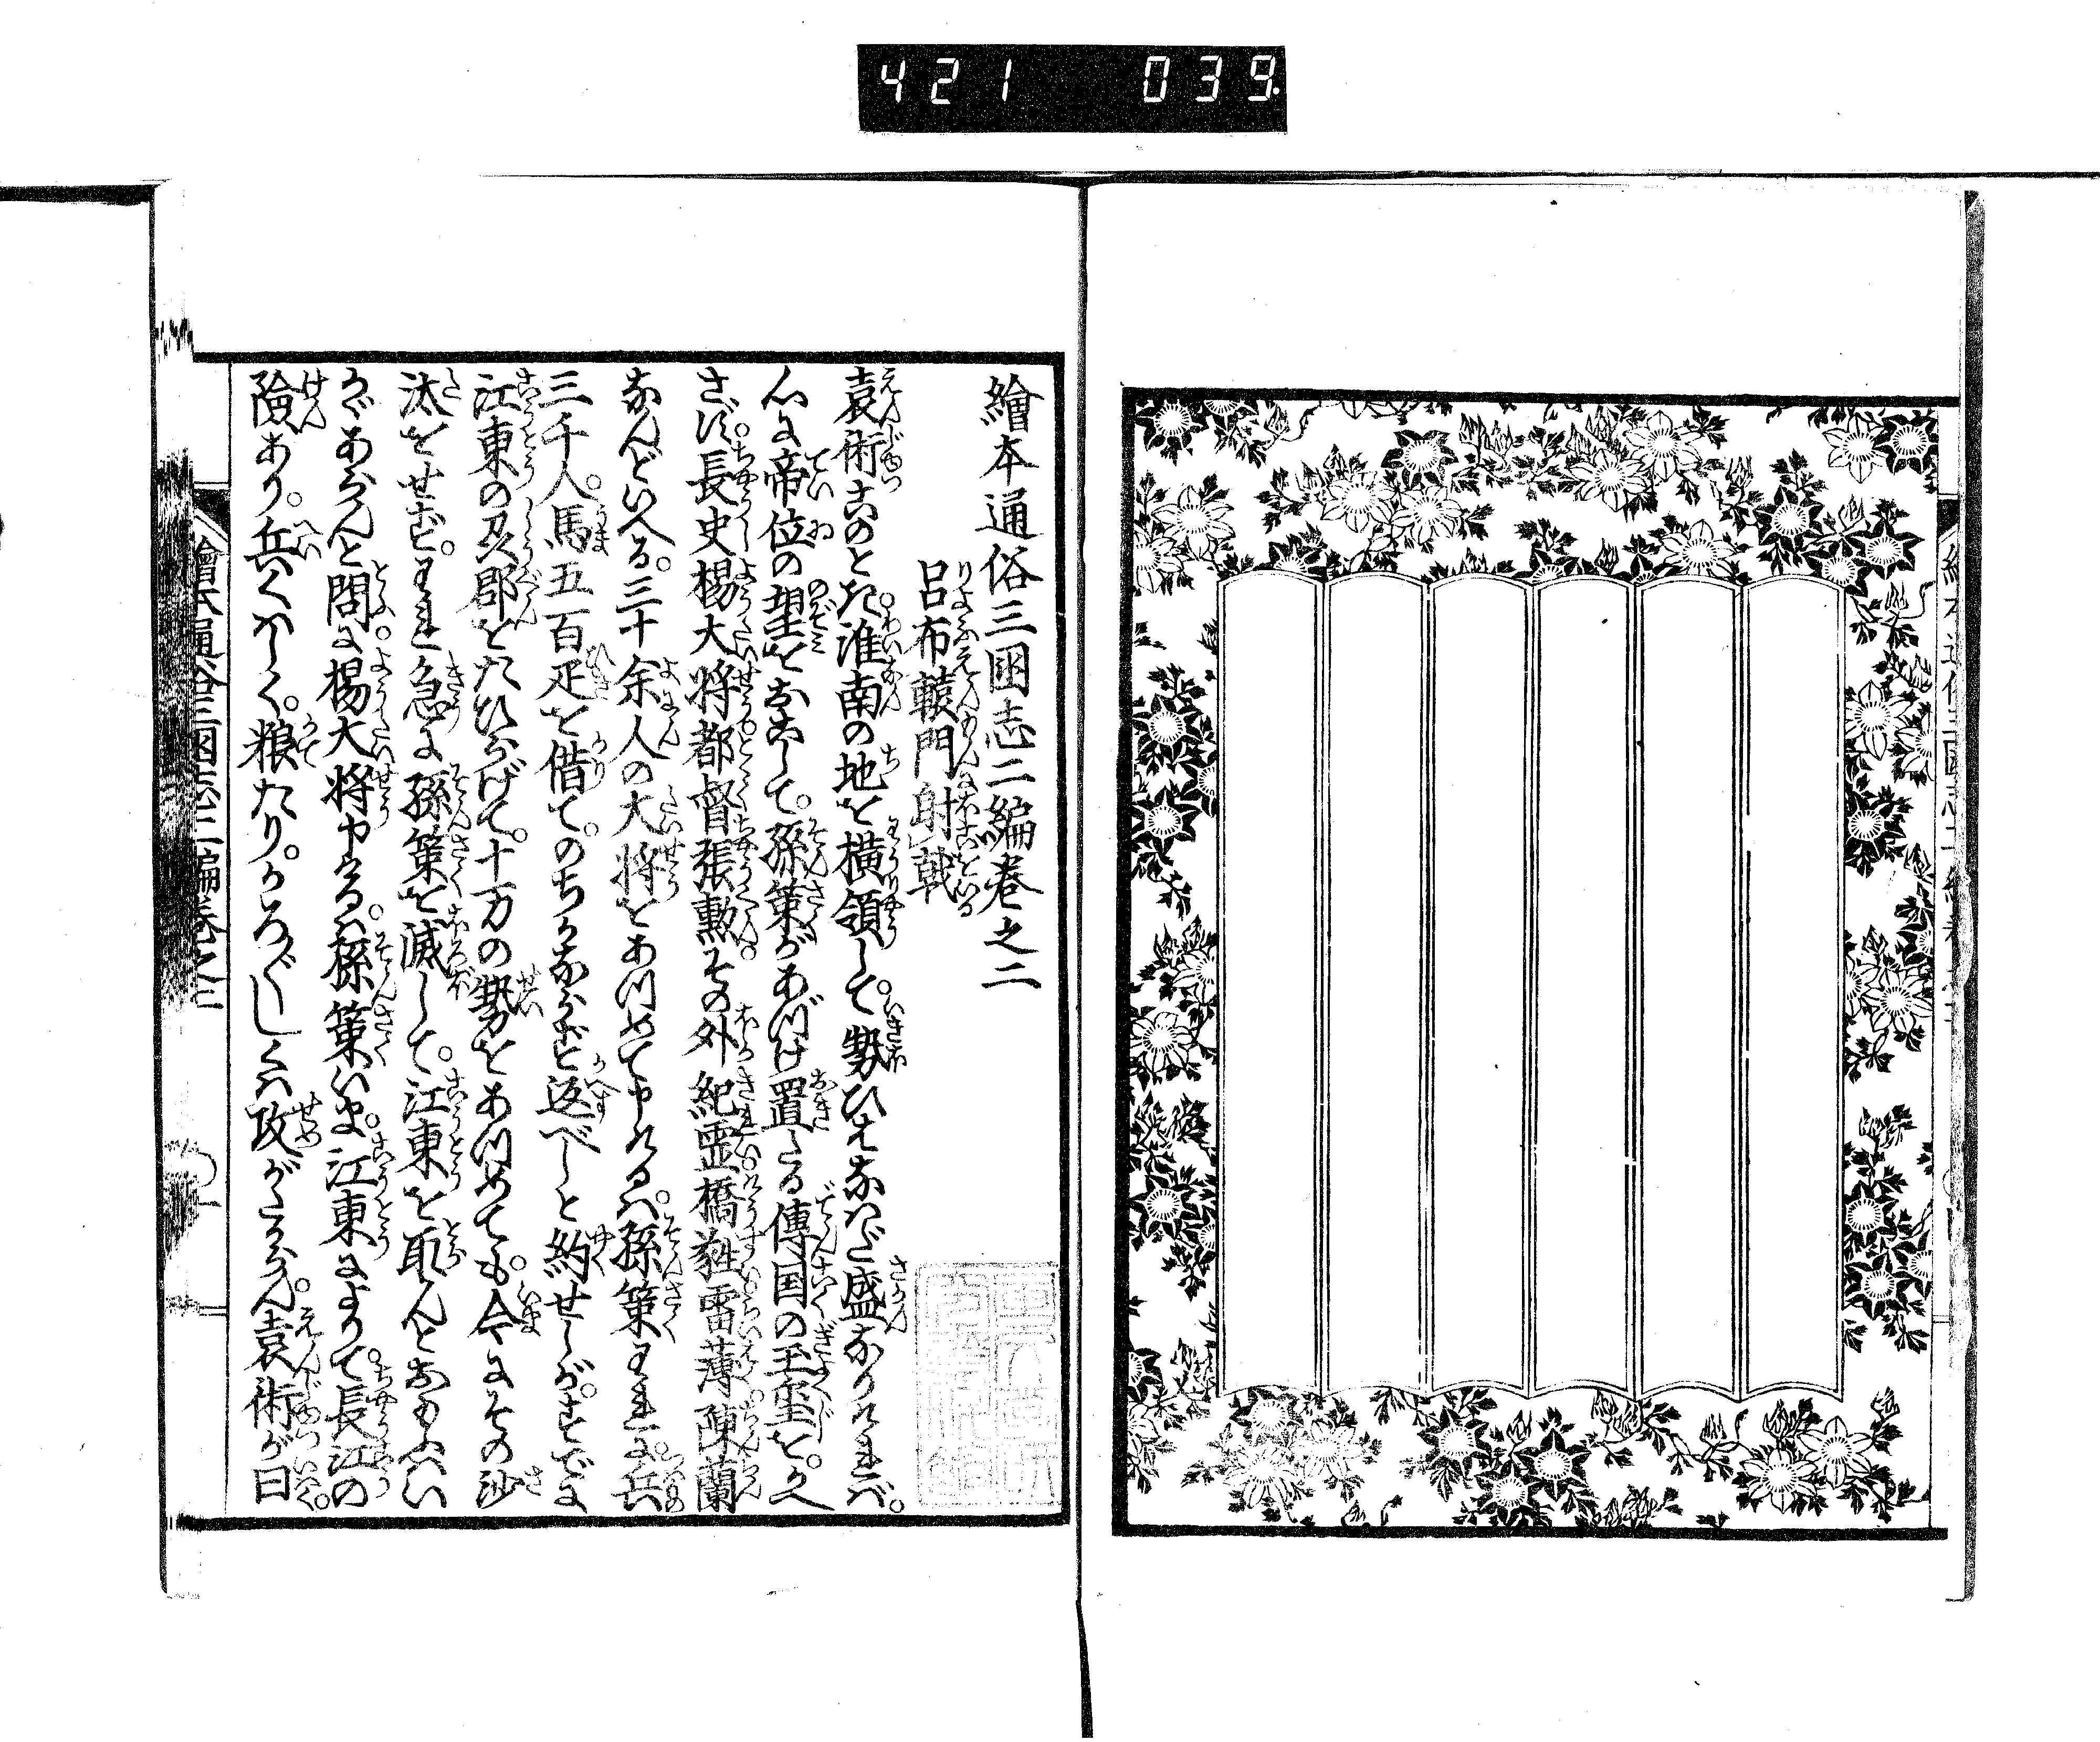 421 039
繪本通俗三國志二編巻之二
呂布轅門射戟
袁術このとき淮南の地を横領して。勢ひはなはだ盛なりければ。
心に帝位の望をおこして。孫策があづけ置たる傳国の玉璽を。かへ
さず。長史楊大将都督張勲。その外紀霊橋甤雷薄陳蘭
なんどいへる。三十余人の大将をあつめて申けるハ。孫策われに。兵
三千人。馬五百疋を借て。のちかならず返べしと約せしが。すでに
江東の及郡をたひらげて。十万の勢をあつめても。今にその沙
汰をせず。われ急に孫策を滅して。江東を取んとおもふハい
かゞあらんと問に。楊大将申けるハ。孫策いま。江東によりて。長江の
険あり。兵くハしく。粮たり。かろ〴〵しくハ攻がたからん。袁術が曰。
繪本通俗三國志二編巻之二